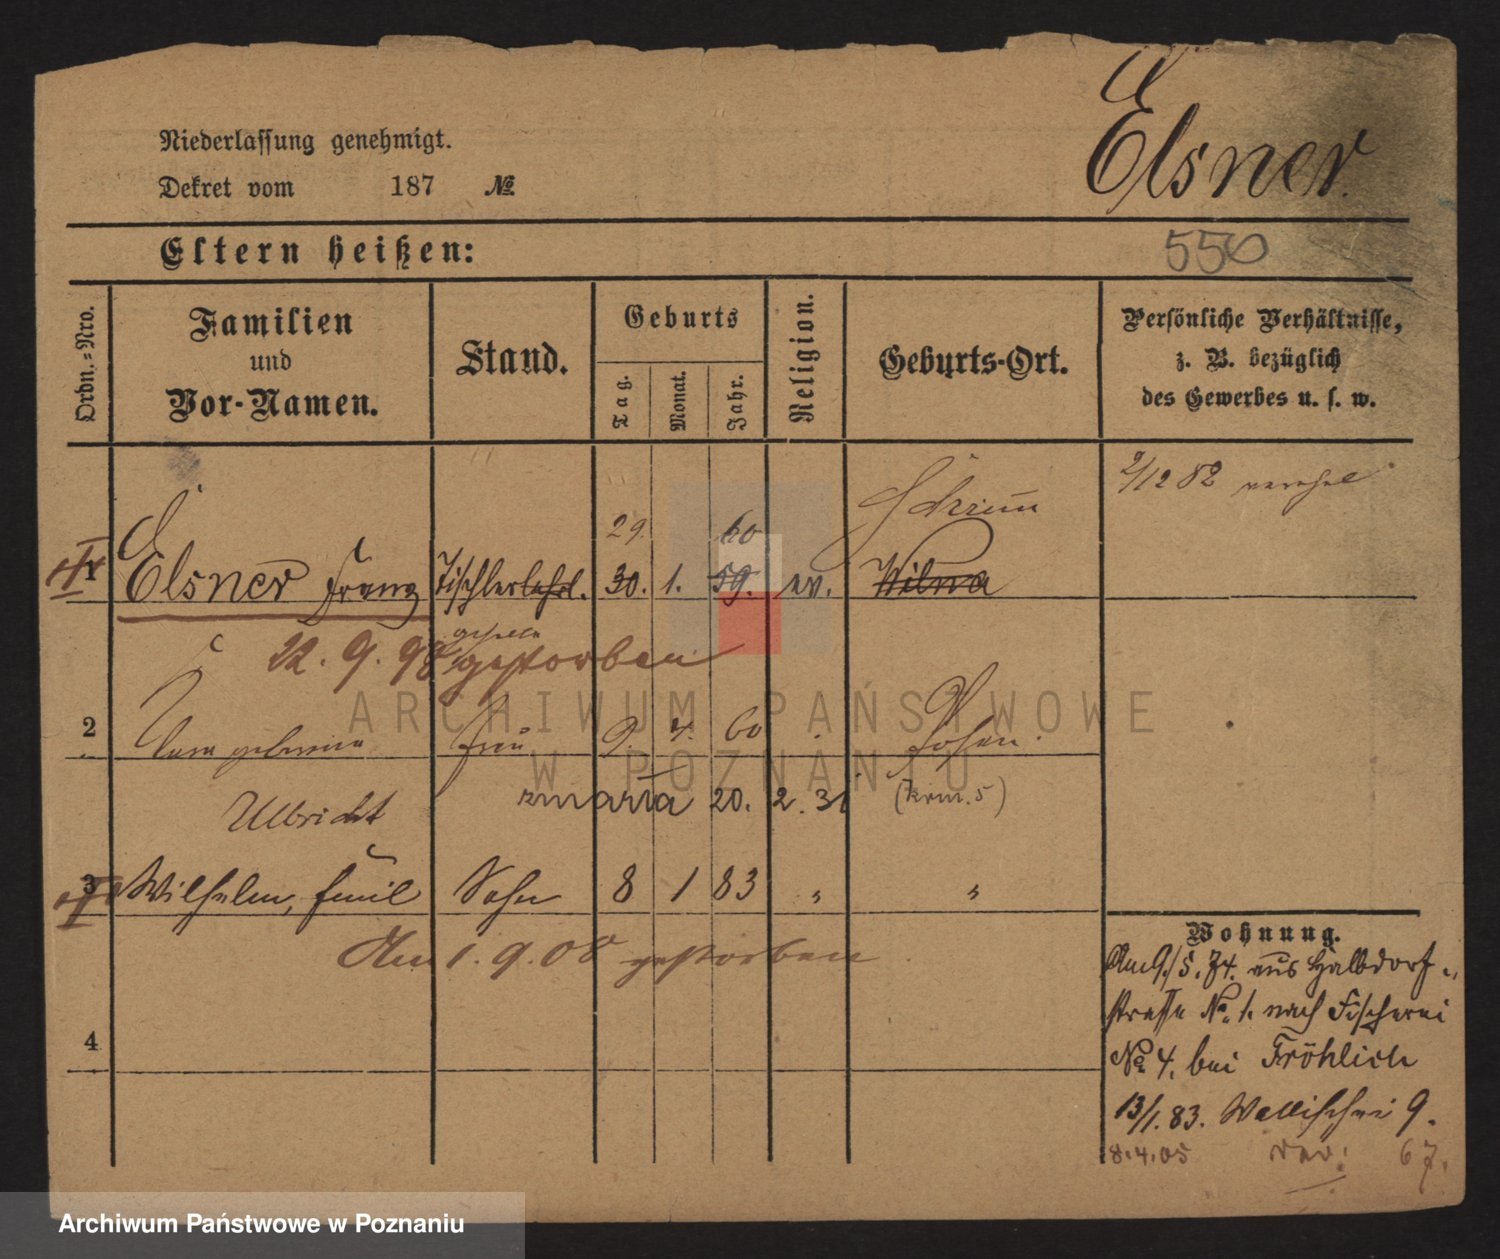 Elsner
Niederlassung genehmigt.
Dekret vom 187 №
Eltern heißen:
550
Ordn.=Nro.
Familien
und
Vor-Namen.
Stand.
Geburts
Tag.
Monat.
Jahr.
Religion.
Geburts-Ort.
Persönliche Verhältnisse,
z. B. bezüglich
des Gewerbes u. s. w.
2/12 82 verehel
29. 60
1 Elsner Franz Tischlerlehrl. 30. 1. 59. ev. Wilna
geselle
22. 9. 98 gestorben
2 geborene Frau 9. 4. 60 Posen.
Ulbricht
maria 20. 2. 31
3 Wilhelm, Emil Sohn 8 1 83 " "
Am 1. 9. 08 gestorben
4
Wohnung.
Am 9./5. 74. aus Halbdorf-
strasse №. 1. nach Fischerei
№ 4. bei Fröhlich
13/1. 83. Wallischei 9.
8.4.05 rev: 67.
ARCHIWUM PAŃSTWOWE
W POZNANIU
Archiwum Państwowe w Poznaniu